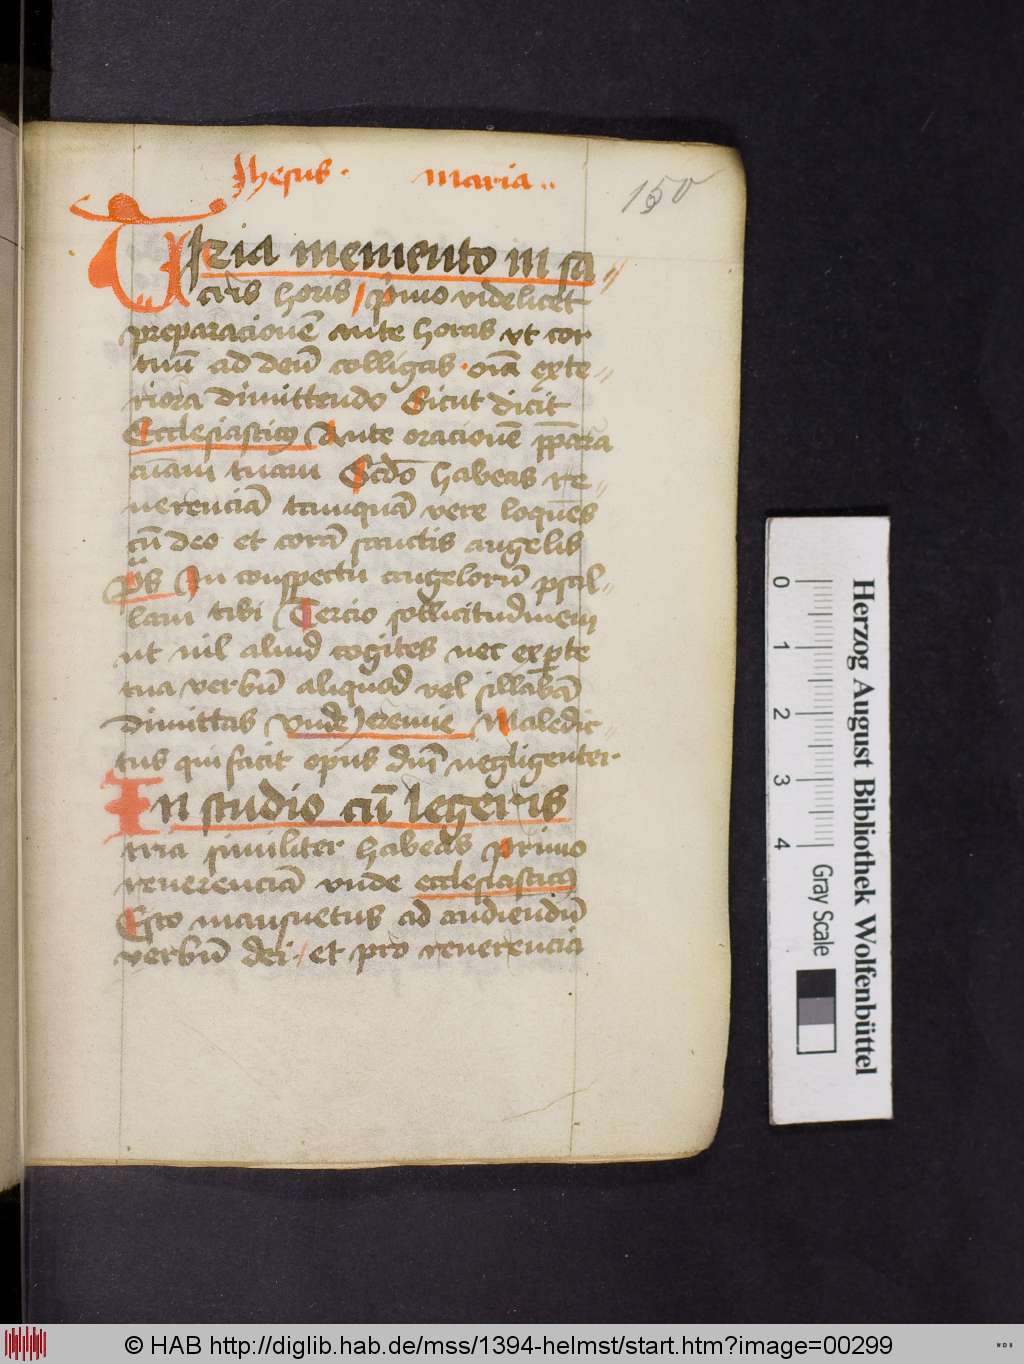 Jhesus · Maria ..
150
Tria memento in sa〃
cris horis / p̄mo videlicet
preparacionē ante horas vt cor
tuū ad deū colligas · oīa exte〃
riora dimittendo Sicut dicit
Ecclesiasticꝯ Ante oracionē p̄para
aīam tuam Scdo habeas re〃
uerenciā tamquā vere loquēs
cū deo et corā sanctis angelis
pˢ In conspectu angelorū psal〃
lam tibi Tercio sollicitudinem
ut nil aliud cogites nec ex ꝑte
tua verbū aliquod vel sillabā
dimittas Vnde Jeremie Maledic〃
tus qui facit opus dnī negligenter ·
In studio cū legeris
tria similiter habeas primo
reuerenciā vnde ecclesiasticꝯ
Esto mansuetus ad audiendū
verbū dei · / et pro reuerencia
0 1 2 3 4
Gray Scale
Herzog August Bibliothek Wolfenbüttel
© HAB http://diglib.hab.de/mss/1394-helmst/start.htm?image=00299